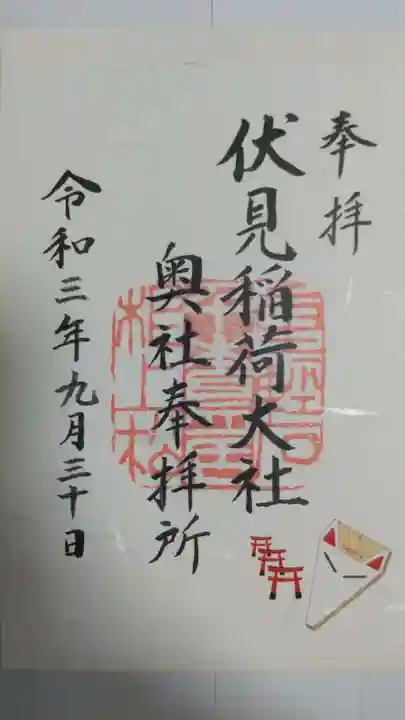 奉拝
伏見稲荷大社
奥社奉拝所
令和三年九月三十日